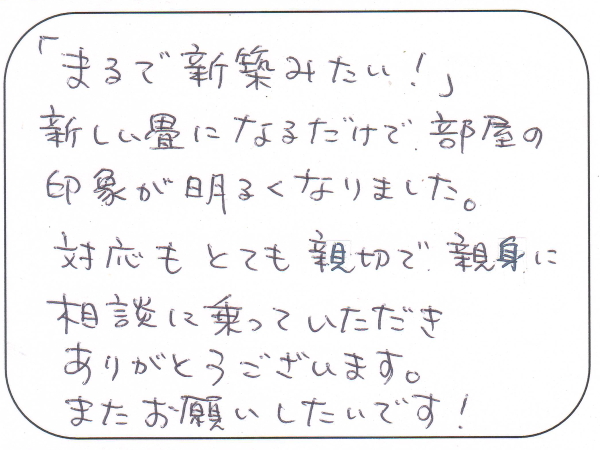 「まるで新築みたい！」
新しい畳になるだけで部屋の
印象が明るくなりました。
対応もとても親切で親身に
相談に乗っていただき
ありがとうございます。
またお願いしたいです！